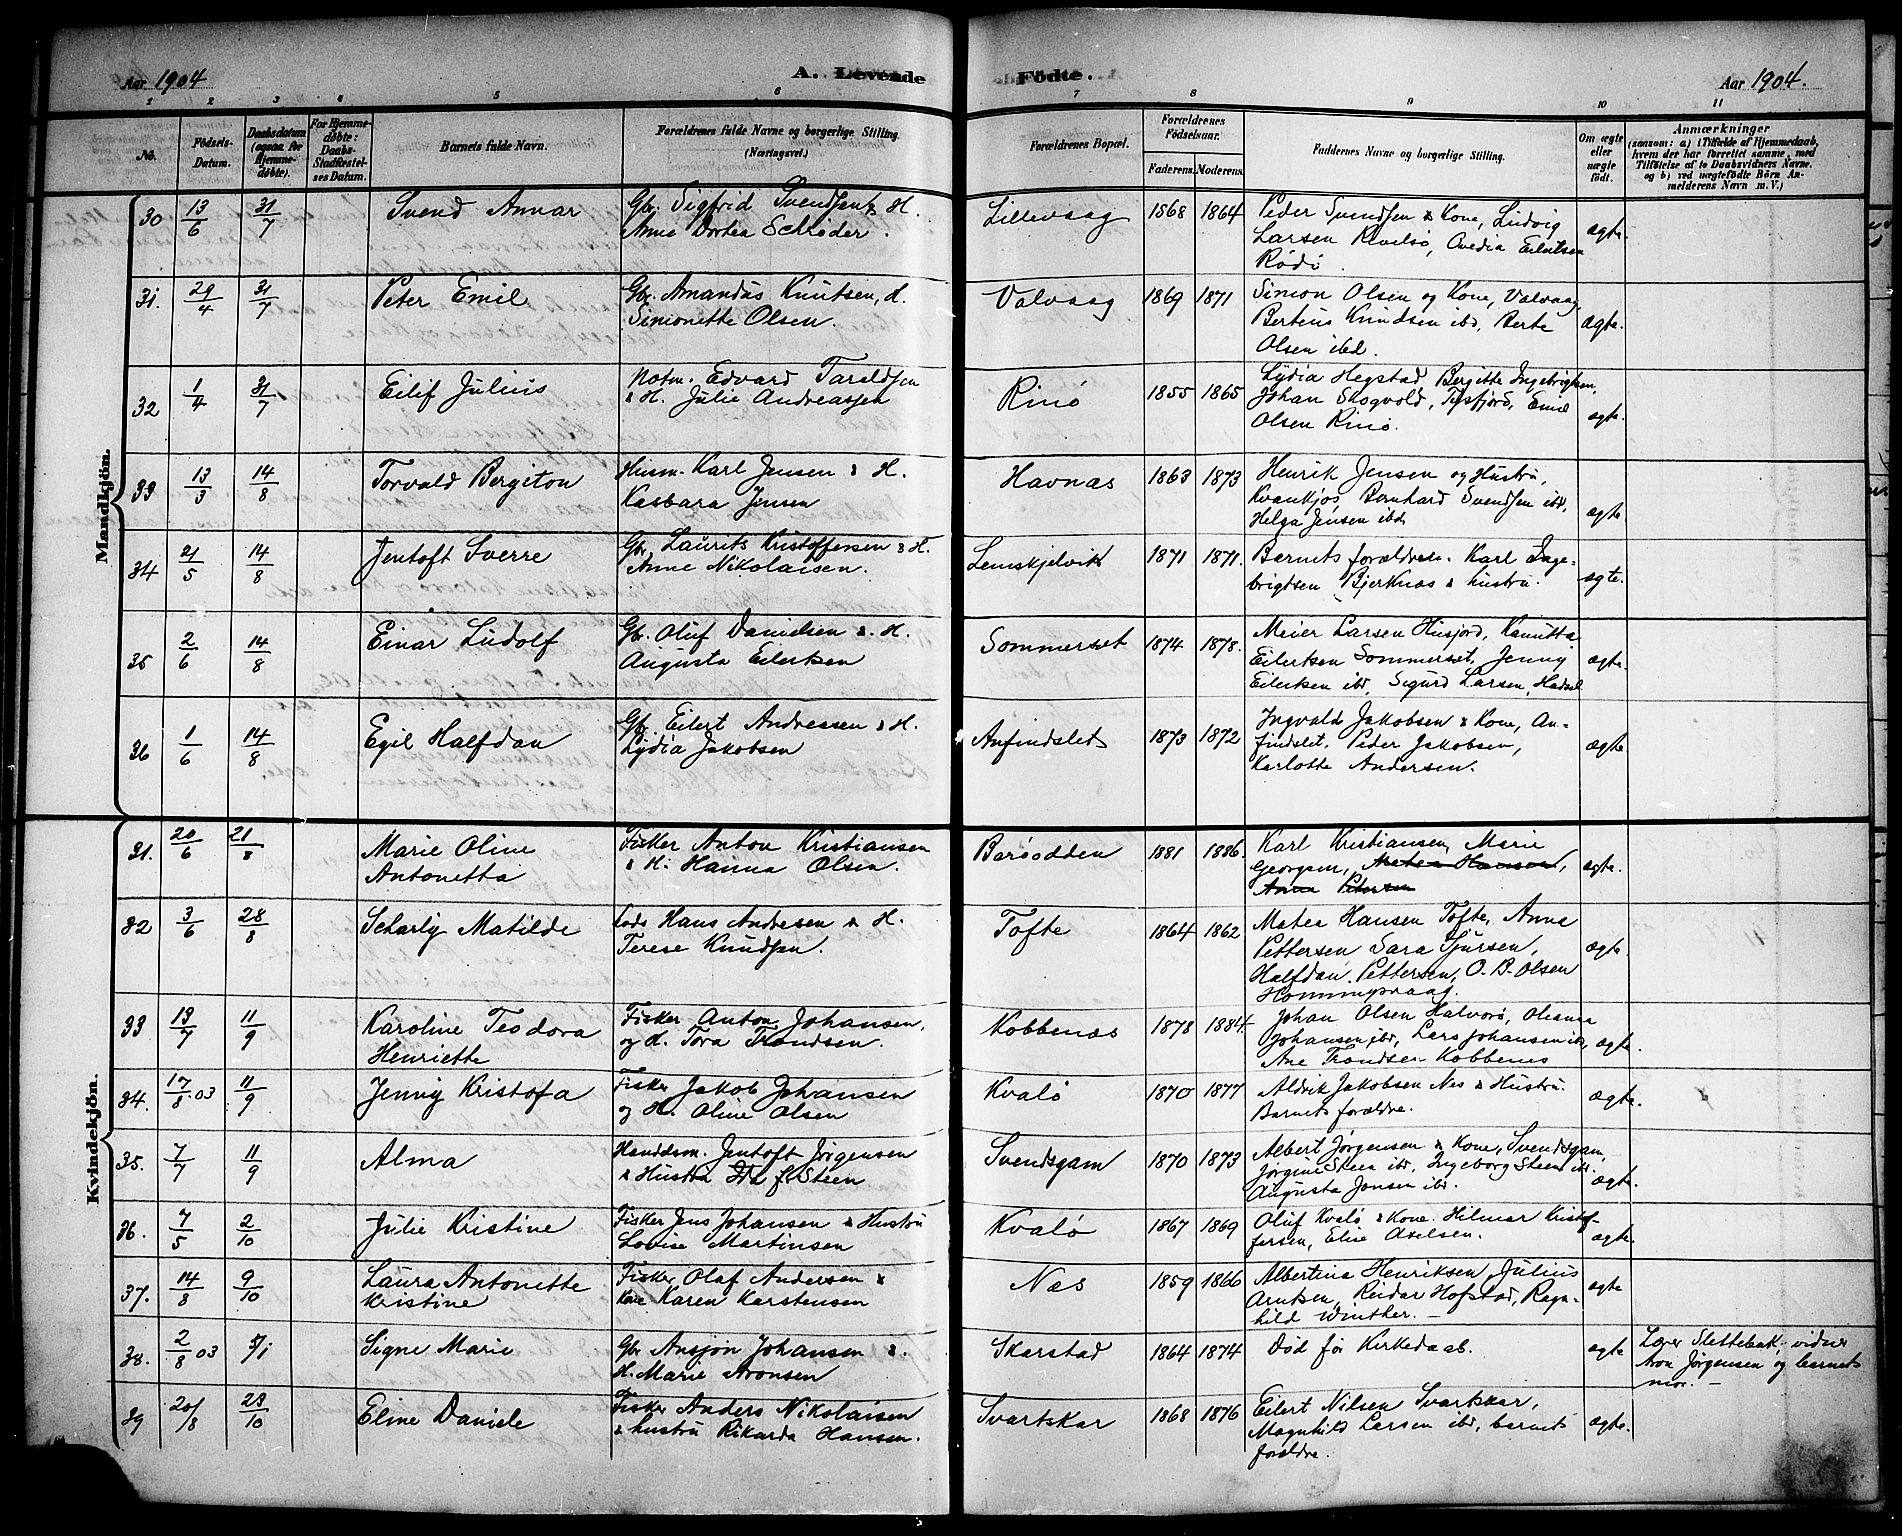 Aar 1904
A. Levende
Födte.
Aar 1904.
1 2 3 4 5 6 7 8 9 10 11
No.
Födsels-
Datum.
Daabsdatum
(ogsaa for
Hjemme-
døbte).
For Hjemme-
døbte:
Daabs-
Stadfæstel-
ses Datum.
Barnets fulde Navn.
Forældrenes fulde Navne og borgerlige Stilling.
(Næringsvei.)
Forældrenes Bopæl.
Forældrenes
Födselsaar.
Faderens. Moderens.
Faddernes Navne og borgerlige Stilling.
Om ægte
eller
uægte
födt.
Anmærkninger
(saasom: a) i Tilfælde af Hjemmedaab,
hvem der har forrettet samme, med
Tilföielse af to Daabsvidners Navne.
og b) ved uægtefödte Börn An-
melderens Navn m. V.)
Mandkjön.
30 13/6 31/7 Svend Annar Gbr. Sigfrid Svendsen & H. Lillevaag 1868 1864 Peder Svendsen & Kone, Ludvig
Anna Dortea Schrøder. Larsen Kvelsø, Ovedia Eilertsen ægte.
Rødi.
31. 29/4 31/7 Peter Emil Gbr. Amandus Knutsen, H. Valvaag 1869 1871 Simon Olsen og Kone, Valvaag,
Simonette Olsen. Berteus Knudsen ibd, Berte ægte.
Olsen ibd.
32 1/4 31/7 Eilif Julius Notm. Edvard Taraldsen Rinø 1855 1865 Lydia Hegstad, Bergitte Ingebrigtsen,
& H. Julie Andreassen Johan Skogvold, Tysfjord, Emil ægte.
Olsen Rinø.
33 13/3 14/8 Torvald Bergiton Husm. Karl Jensen & H. Havnæs 1863 1873 Henrik Jensen og Hustru,
Kasbara Jensen Kvankjos, Bernhard Svendsen ibd, ægte.
Helga Jensen ibd
34 21/5 14/8 Jentoft Sverre Gbr. Laurits Kristoffersen & H. Lemskjelvik 1871 1871. Barnets forældre. Karl Inge-
Anne Nikolaisen. brigtsen Bjerknæs & hustru. ægte.
35 2/6 14/8 Einar Ludolf Gbr. Oluf Danielsen &. H. Sommerset 1874 1878. Meier Larsen Husjord, Kanutta
Augusta Eilertsen Eilertsen Sommerset, Jenny ægte.
Eilertsen ibd, Sigurd Larsen, Hadsel
36 1/6 14/8 Egil Halfdan Gbr. Eilert Andressen & H. Anfindslet 1873 1872 Ingvald Jakobsen & Kone, An-
Lydia Jakobsen findslet. Peder Jakobsen, ægte
Karlotte Andersen.
Kvindekjön.
31. 20/6 21/8 Marie Oline Fisker Anton Kristiansen Barøodden 1881 1886. Karl Kristiansen, Marie
Antonetta & H. Hanna Olsen. Georgsen, Matea Hansen, ægte.
Anna Petersen
32 3/6 28/8 Scharly Matilde Lods Hans Andresen & H. Tofte 1864 1862 Matea Hansen Tofte, Anna
Terese Knudsen. Pettersen, Sara Sjursen, ægte.
Halfdan Pettersen, O. B. Olsen
33 13/7 11/9 Karoline Teodora Fisker Anton Johansen, Kobbenæs 1878 1884. Johan Olsen Halvorø, Oleanna
Henriette og H. Tora Trondsen. Johansen ibd, Lars Johansen ibd, ægte.
Ane Trondsen Kobbenes
34. 17/8.03 11/9 Jenny Kristofa Fisker Jakob Johansen Kvalø 1870 1877 Aldrik Jakobsen Nes & Hustru.
og H. Oline Olsen Barnets forældre. ægte.
35. 7/7 11/9 Alma Handelsm. Jentoft Jørgensen Svendsgam 1870 1873 Albert Jørgensen & Kone, Svendsgam,
& Hustru Ida f. Steen Jørgine Steen ibd, Ingeborg Steen ibd. ægte.
Augusta Jensen ibd.
36. 7/5 2/10 Julie Kristine Fisker Jens Johansen & Hustru Kvalø 1867 1869 Oluf Kvalø & Kone. Hilmar Kristof-
Lovise Martinsen fersen, Elise Axelsen. ægte.
37. 14/8 9/10 Laura Antonette Fisker Olaf Andersen & Næs 1859 1866 Albertina Henriksen, Julius
Kristine Kone Karen Karstensen Arntsen, Reidar Hofstad, Ragn- ægte
hild Winther. —
38. 2/8 03 5/1 Signe Marie Gbr Ansjøn Johansen &. Skarstad 1864 1874 Død før Kirkedaab. ægte Lærer Slettebak, vidner
H. Marie Aronsen Aron Jørgensen og barnets
mor. —
39 20/8 23/10 Eline Daniele Fisker Anders Nikolaisen Svartskar 1868 1876 Eilert Nilsen Svartskar,
& hustru Rikarda Hansen. Magnhild Larsen ibd, barnets ægte.
forældre.